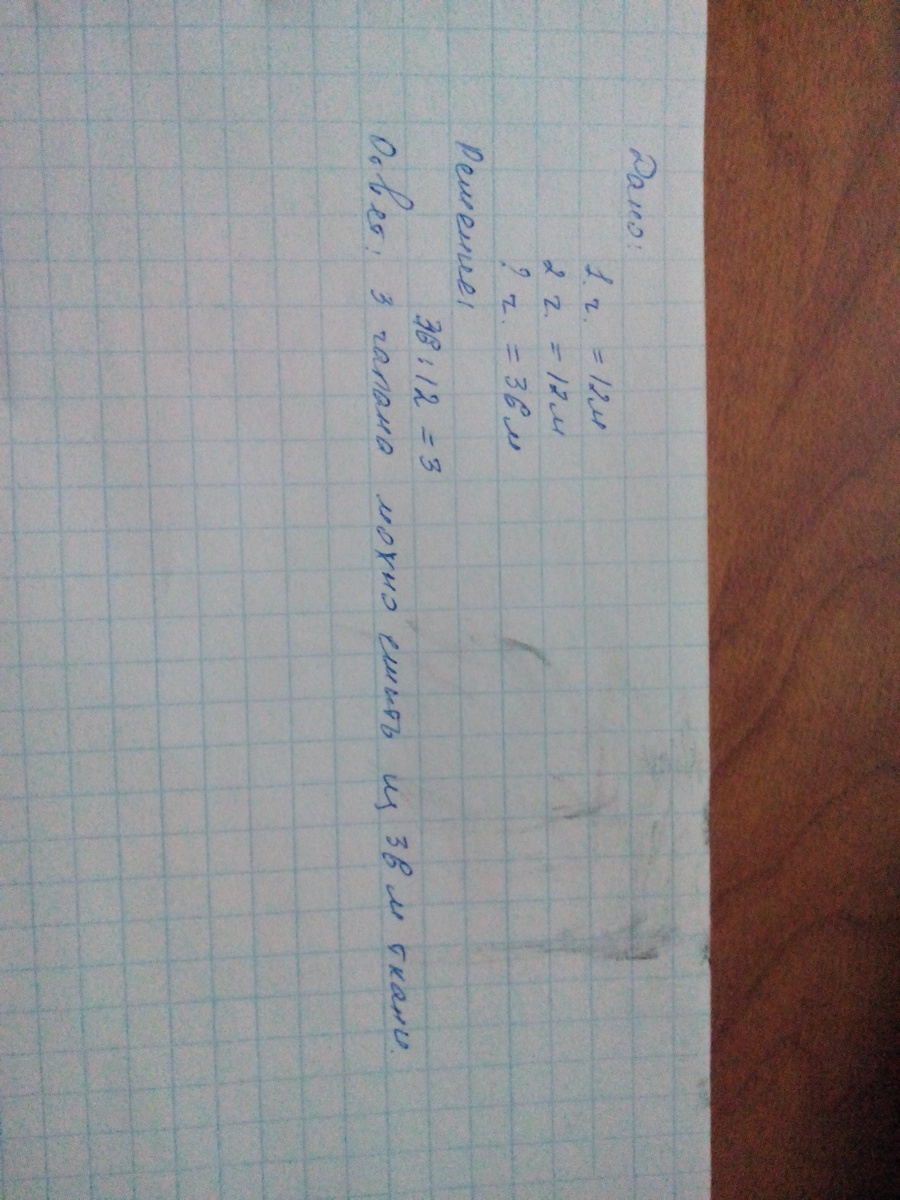 Дано:
1 ч. = 12м
2 ч. = 12м
? ч. = 36м
Решение:
36:12 = 3
Ответ: 3 чапана можно сшить из 36 м ткани.